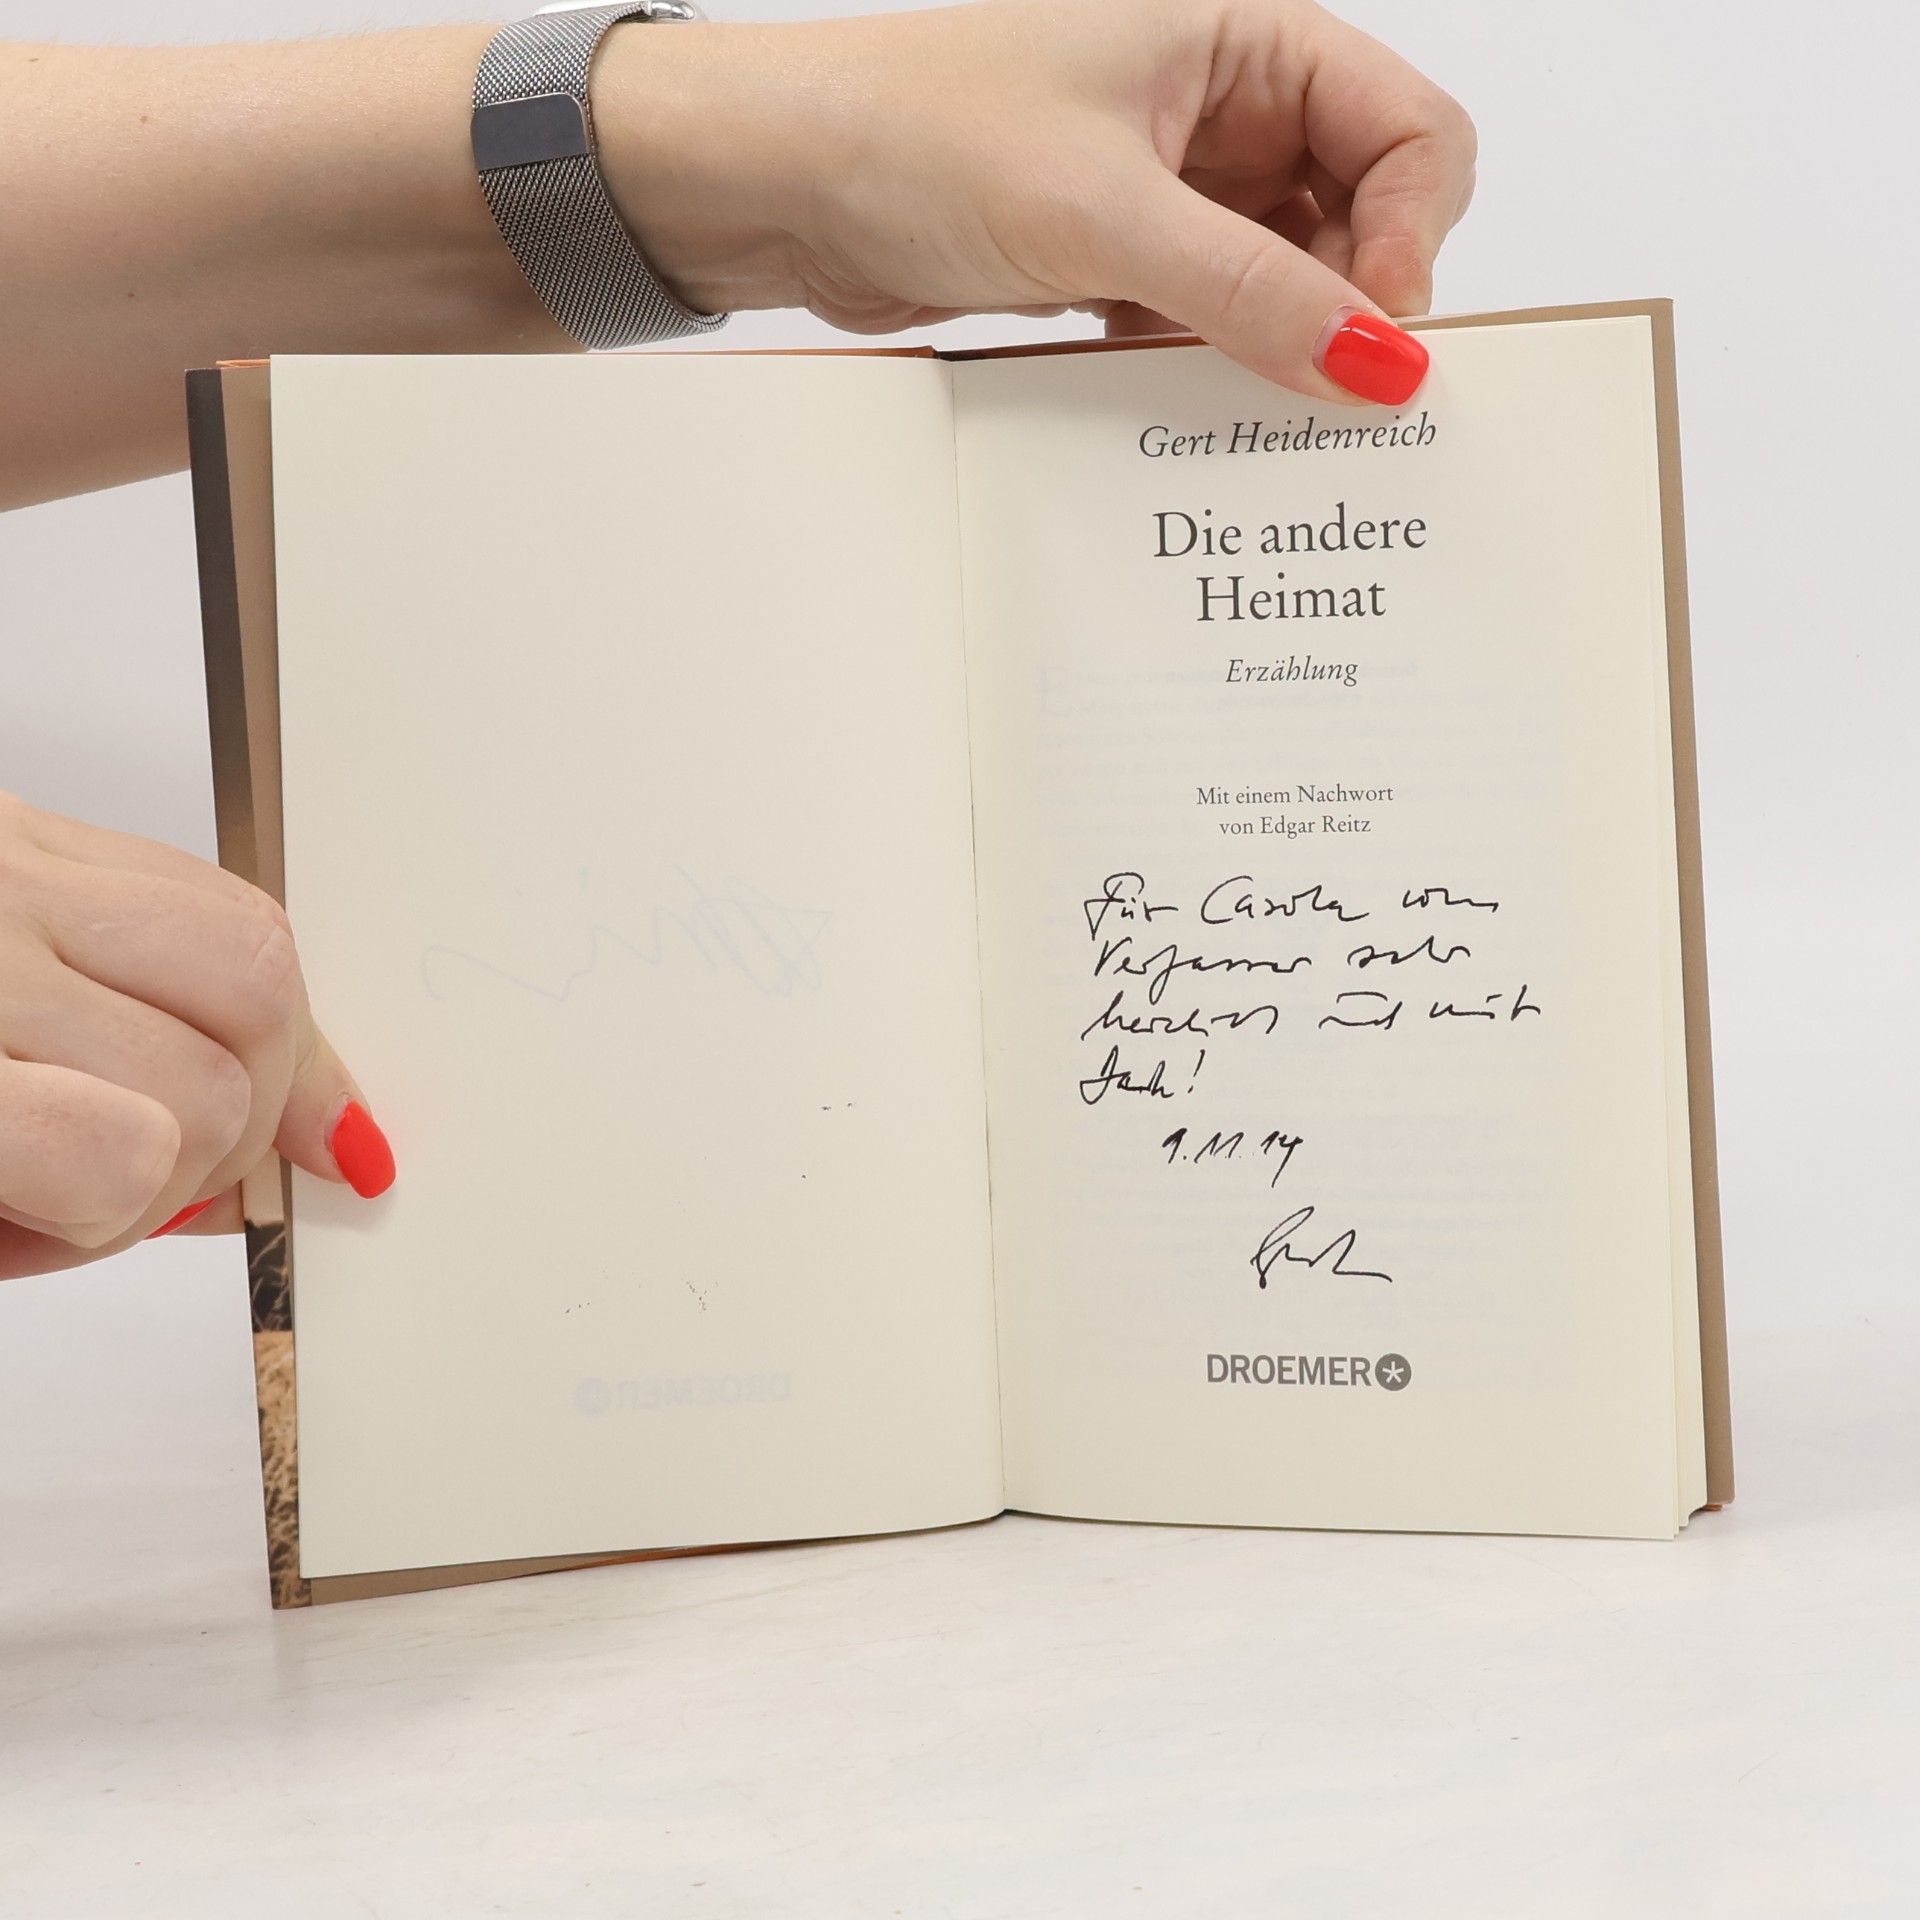 Gert Heidenreich
Die andere
Heimat
Erzählung
Mit einem Nachwort
von Edgar Reitz
Für Carola vom
Verfasser sehr
herzlich und mit
Dank!
9.11.14
Gert
DROEMER